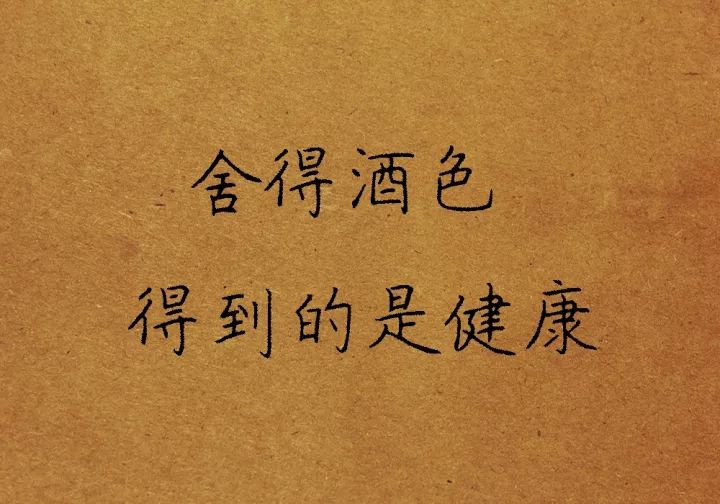 舍得酒色
得到的是健康